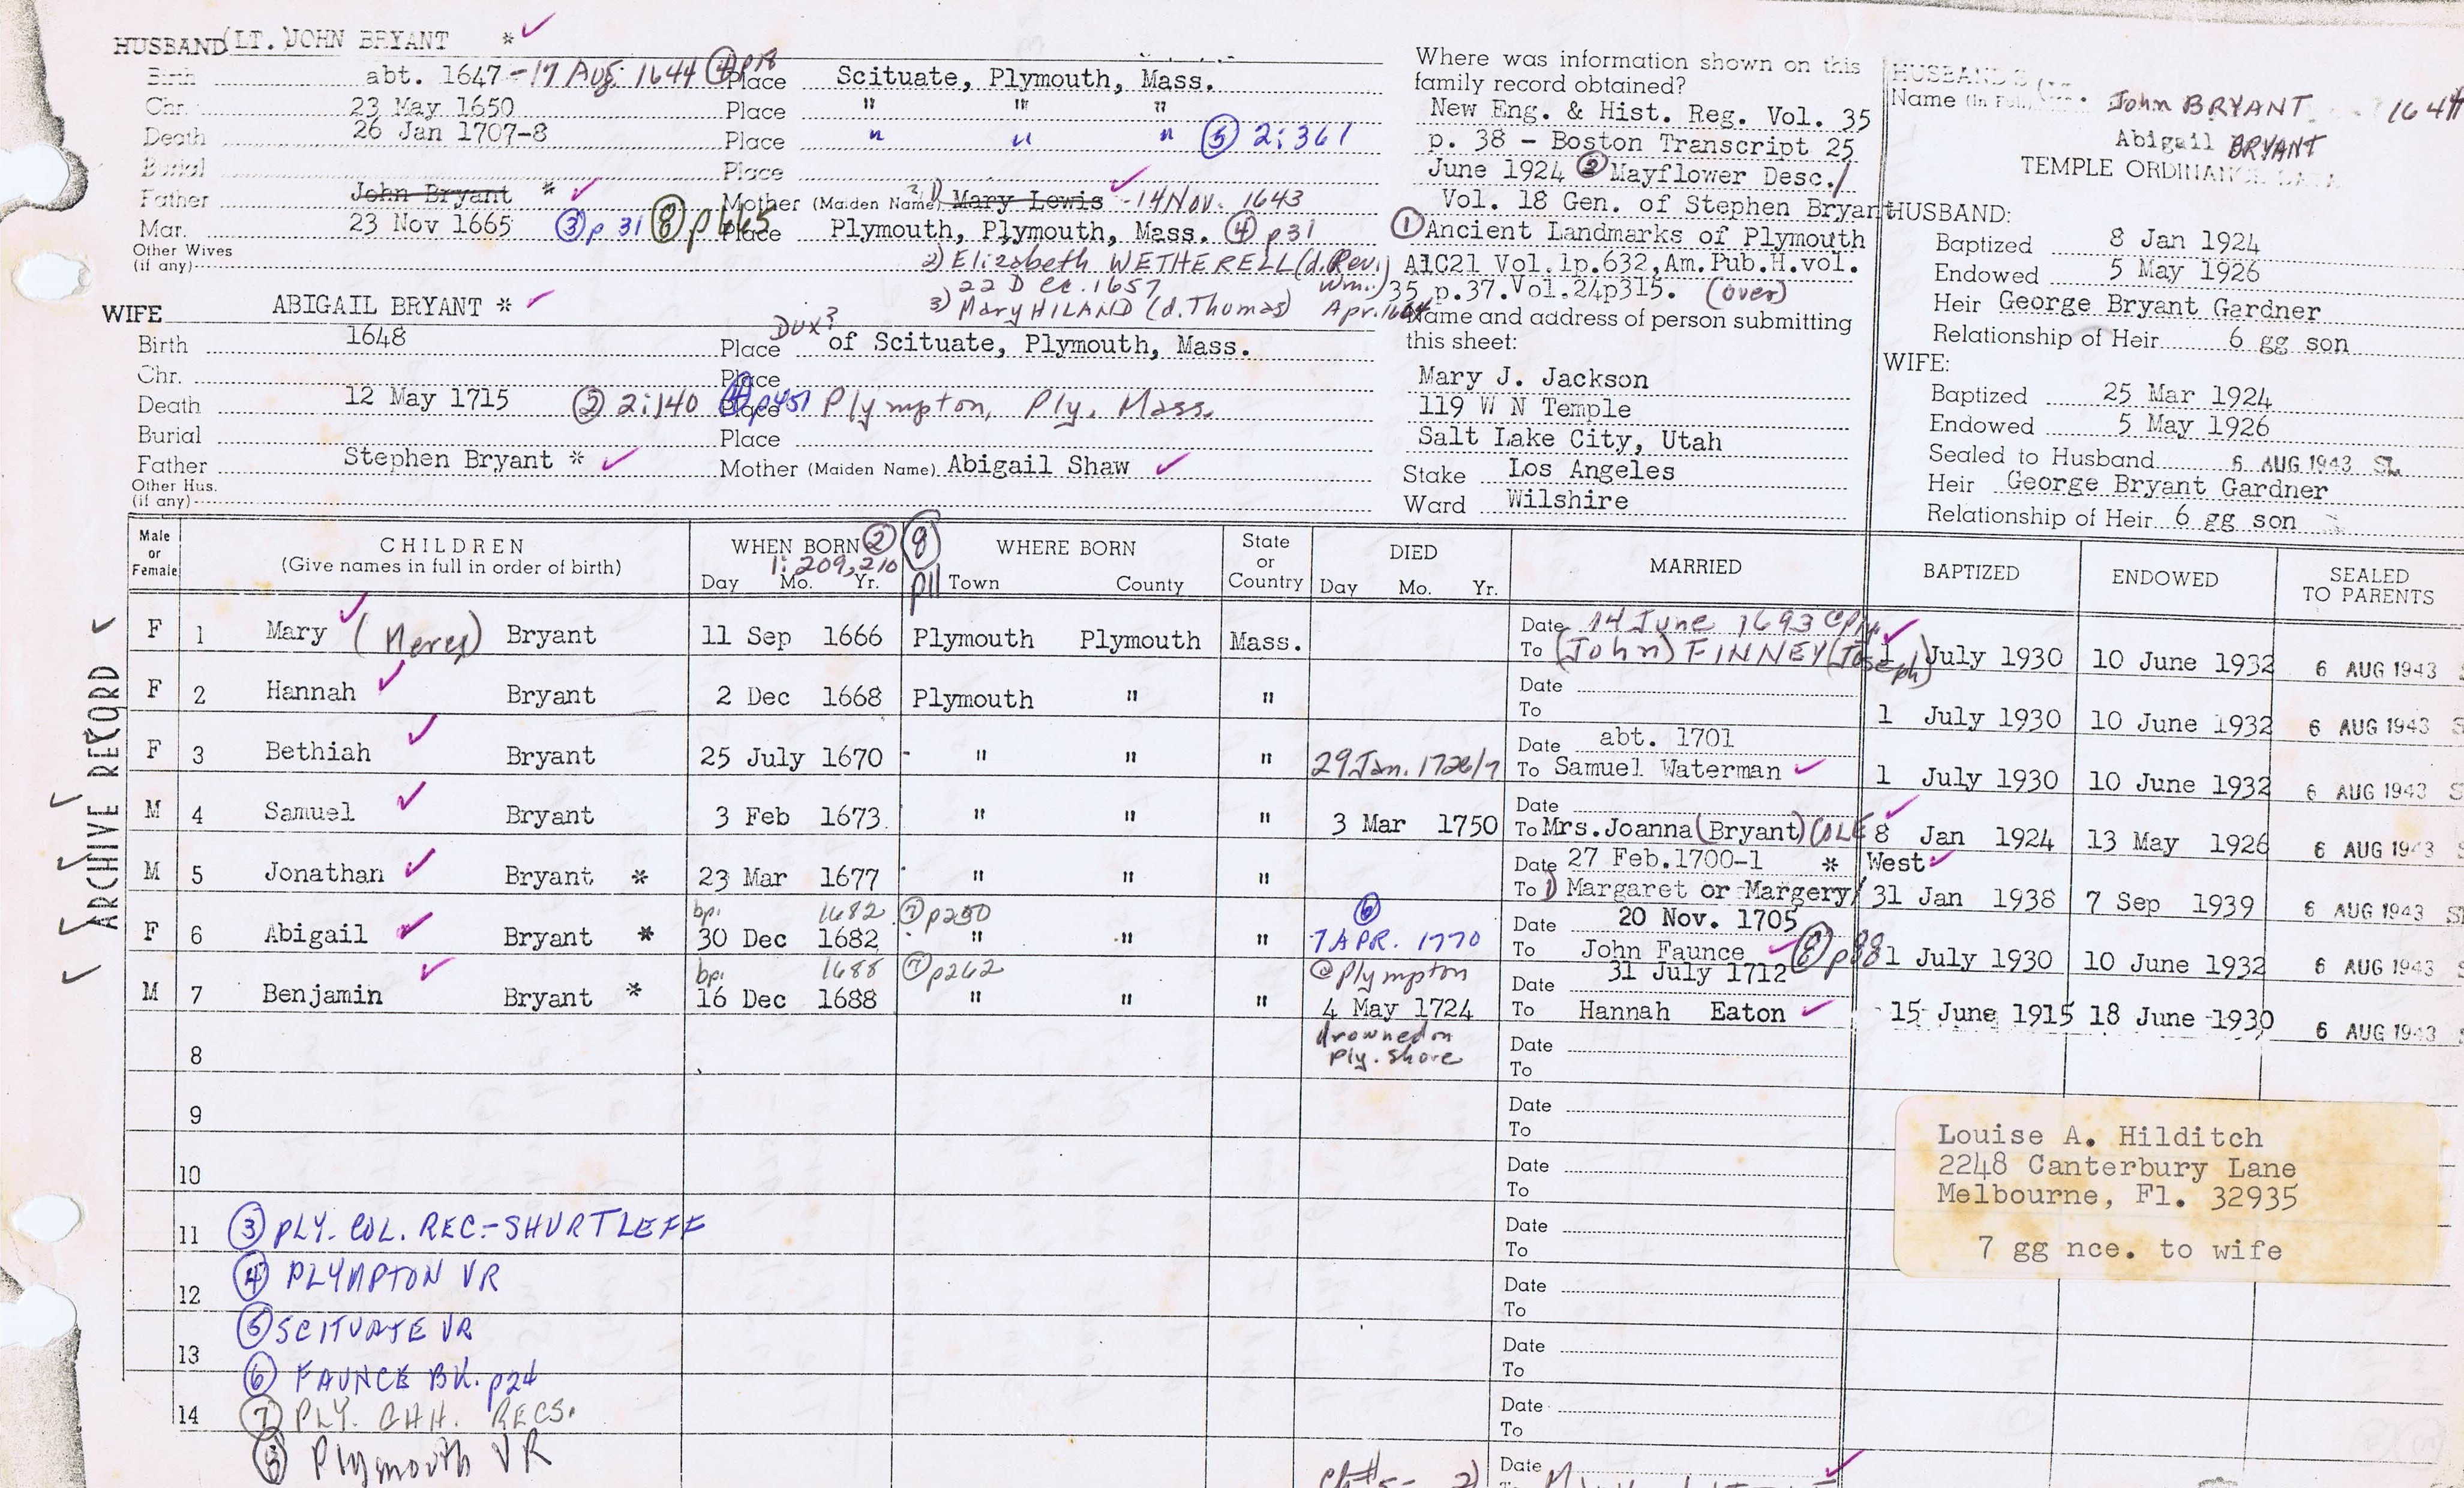 HUSBAND (LT.) JOHN BRYANT *
Birth abt. 1647 - 17 Aug. 1644 (4) p18 Place Scituate, Plymouth, Mass.
Chr. 23 May 1650 Place " " "
Death 26 Jan 1707-8 Place " " " (5) 2:361
Burial Place
Father John Bryant * Mother (Maiden Name) 1) Mary Lewis - 14 Nov. 1643
Mar. 23 Nov 1665 (3) p 31 (8) p665 Place Plymouth, Plymouth, Mass. (4) p31
Other Wives
(if any) 2) Elizabeth WETHERELL (d. Rev. Wm.)
22 Dec. 1657
3) Mary HILAND (d. Thomas) Apr. 1664
WIFE ABIGAIL BRYANT *
Birth 1648 Place Dux? of Scituate, Plymouth, Mass.
Chr. Place
Death 12 May 1715 (2) 2:140 (4) p451 Place Plympton, Ply. Mass.
Burial Place
Father Stephen Bryant * Mother (Maiden Name) Abigail Shaw
Other Hus.
(if any)
Where was information shown on this
family record obtained?
New Eng. & Hist. Reg. Vol. 35
p. 38 - Boston Transcript 25
June 1924 (2) Mayflower Desc./
Vol. 18 Gen. of Stephen Bryant
(1) Ancient Landmarks of Plymouth
A1C21 Vol.1p.632, Am.Pub.H.vol.
35 p.37.Vol.24p315. (over)
Name and address of person submitting
this sheet:
Mary J. Jackson
119 W N Temple
Salt Lake City, Utah
Stake Los Angeles
Ward Wilshire
HUSBAND'S
Name (in Full) John BRYANT 1644
Abigail BRYANT
TEMPLE ORDINANCE DATA
HUSBAND:
Baptized 8 Jan 1924
Endowed 5 May 1926
Heir George Bryant Gardner
Relationship of Heir 6 gg son
WIFE:
Baptized 25 Mar 1924
Endowed 5 May 1926
Sealed to Husband 6 AUG 1943 SL
Heir George Bryant Gardner
Relationship of Heir 6 gg son
Male or Female CHILDREN (Give names in full in order of birth) WHEN BORN (2) 1:209,210 Day Mo. Yr. (8) p11 WHERE BORN Town County State or Country DIED Day Mo. Yr. MARRIED BAPTIZED ENDOWED SEALED TO PARENTS
ARCHIVE RECORD
F 1 Mary (Mercy) Bryant 11 Sep 1666 Plymouth Plymouth Mass. Date 14 June 1693 To (John) FINNEY (Joseph) 1 July 1930 10 June 1932 6 AUG 1943
F 2 Hannah Bryant 2 Dec 1668 Plymouth " " Date To 1 July 1930 10 June 1932 6 AUG 1943
F 3 Bethiah Bryant 25 July 1670 " " " 29 Jan. 1726/7 Date abt. 1701 To Samuel Waterman 1 July 1930 10 June 1932 6 AUG 1943
M 4 Samuel Bryant 3 Feb 1673 " " " 3 Mar 1750 Date To Mrs. Joanna (Bryant) COLE 8 Jan 1924 13 May 1926 6 AUG 1943
M 5 Jonathan Bryant * 23 Mar 1677 " " " Date 27 Feb.1700-1 * To 1) Margaret or Margery/ West 31 Jan 1938 7 Sep 1939 6 AUG 1943
F 6 Abigail Bryant * bp. 1682 30 Dec 1682 (7) p250 " " " (6) 7 APR. 1770 Date 20 Nov. 1705 To John Faunce (8) p88 1 July 1930 10 June 1932 6 AUG 1943
M 7 Benjamin Bryant * bp. 1688 16 Dec 1688 (7) p262 " " " @ Plympton 4 May 1724 drowned on Ply. shore Date 31 July 1712 To Hannah Eaton 15 June 1915 18 June 1930 6 AUG 1943
8 Date To
9 Date To
10 Date To
11 (3) PLY. COL. REC.-SHURTLEFF Date To
12 (4) PLYMPTON VR Date To
(5) SCITUATE VR
13 (6) FAUNCE BK. p24 Date To
14 (7) PLY. CHH. RECS. Date To
(8) Plymouth VR
Ch #5- 2) Date
Louise A. Hilditch
2248 Canterbury Lane
Melbourne, Fl. 32935
7 gg nce. to wife